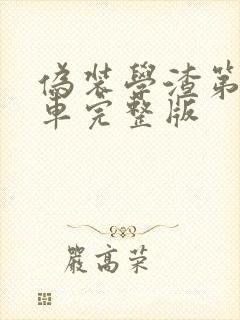 偽裝學渣第
車完整版
嚴高荣